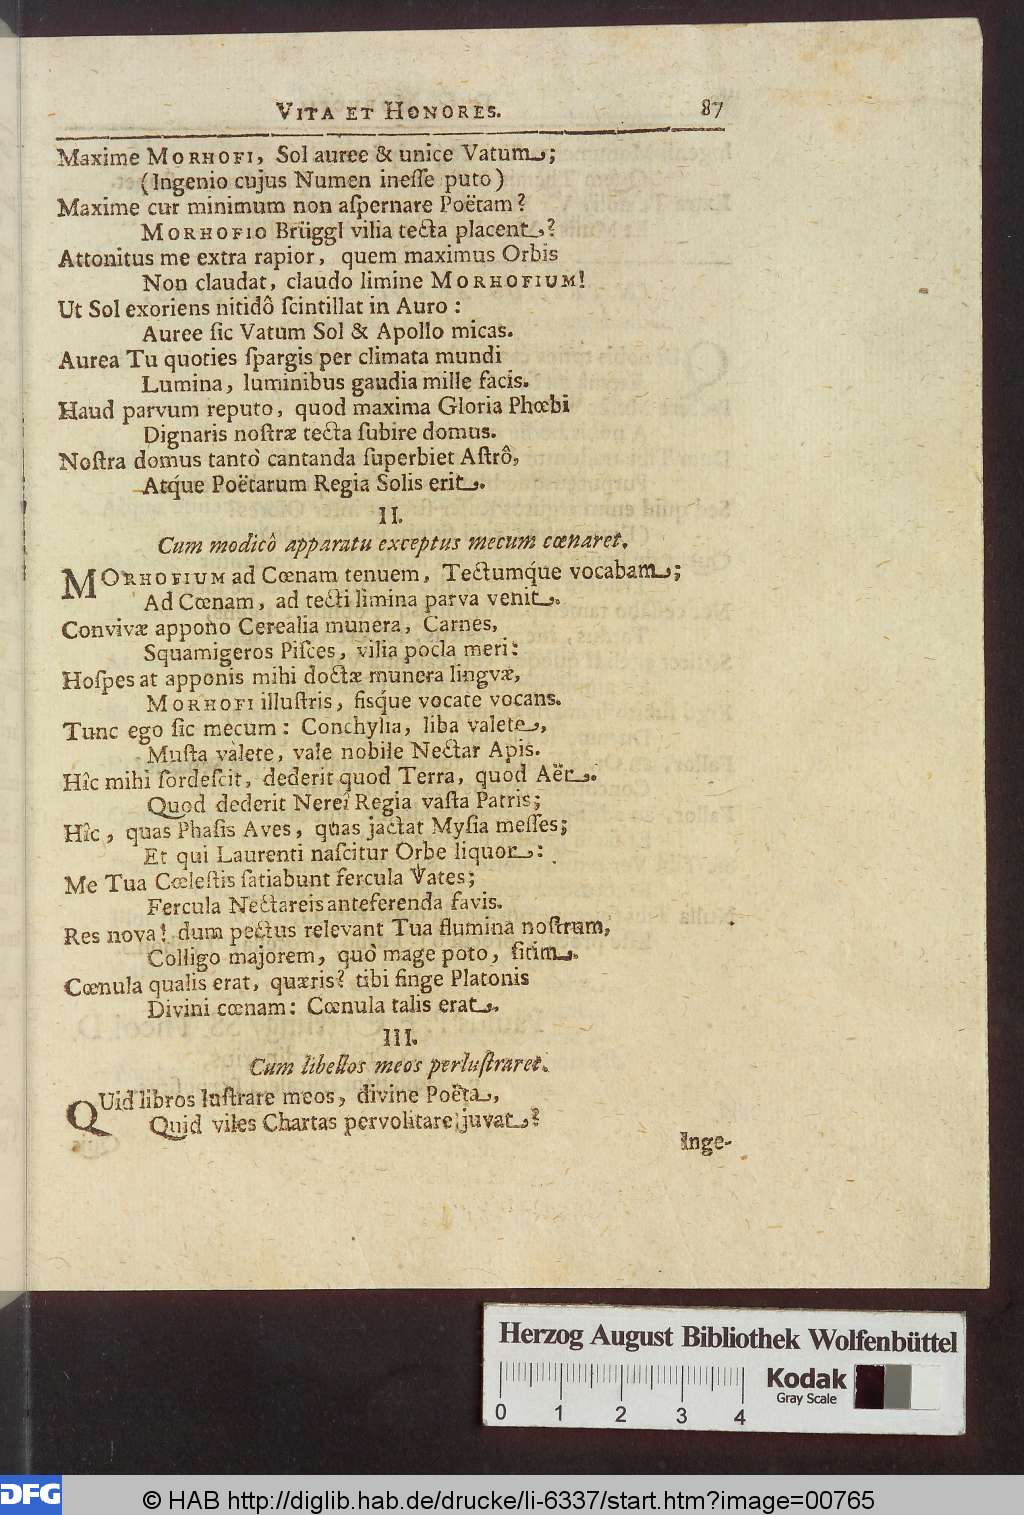 VITA ET HONORES. 87
Maxime MORHOFI, Sol auree & unice Vatum;
(Ingenio cujus Numen ineſſe puto)
Maxime cur minimum non aſpernare Poëtam?
MORHOFIO Brüggl vilia tecta placent?
Attonitus me extra rapior, quem maximus Orbis
Non claudat, claudo limine MORHOFIUM!
Ut Sol exoriens nitidô ſcintillat in Auro:
Auree ſic Vatum Sol & Apollo micas.
Aurea Tu quoties ſpargis per climata mundi
Lumina, luminibus gaudia mille facis.
Haud parvum reputo, quod maxima Gloria Phœbi
Dignaris noſtræ tecta ſubire domus.
Noſtra domus tantò cantanda ſuperbiet Aſtrô,
Atq́ue Poëtarum Regia Solis erit.
II.
Cum modicô apparatu exceptus mecum cœnaret.
MORHOFIUM ad Cœnam tenuem, Tectumq́ue vocabam;
Ad Cœnam, ad tecti limina parva venit.
Convivæ appono Cerealia munera, Carnes,
Squamigeros Piſces, vilia pocla meri:
Hoſpes at apponis mihi doctæ munera lingvæ,
MORHOFI illuſtris, fisq́ue vocate vocans.
Tunc ego ſic mecum: Conchylia, liba valete,
Muſta valete, vale nobile Nectar Apis.
Hîc mihi ſordeſcit, dederit quod Terra, quod Aër.
Quod dederit Nerei Regia vaſta Patris;
Hîc, quas Phaſis Aves, quas jactat Myſia meſſes;
Et qui Laurenti naſcitur Orbe liquor:
Me Tua Cœleſtis ſatiabunt fercula Vates;
Fercula Nectareis anteferenda favis.
Res nova! dum pectus relevant Tua flumina noſtrum,
Colligo majorem, quò mage poto, ſitim.
Cœnula qualis erat, quæris? tibi finge Platonis
Divini cœnam: Cœnula talis erat.
III.
Cum libellos meos perluſtraret.
QUid libros luſtrare meos, divine Poëta,
Quid viles Chartas pervolitare juvat?
Inge-
Herzog August Bibliothek Wolfenbüttel
Kodak
Gray Scale
0 1 2 3 4
DFG
© HAB http://diglib.hab.de/drucke/li-6337/start.htm?image=00765